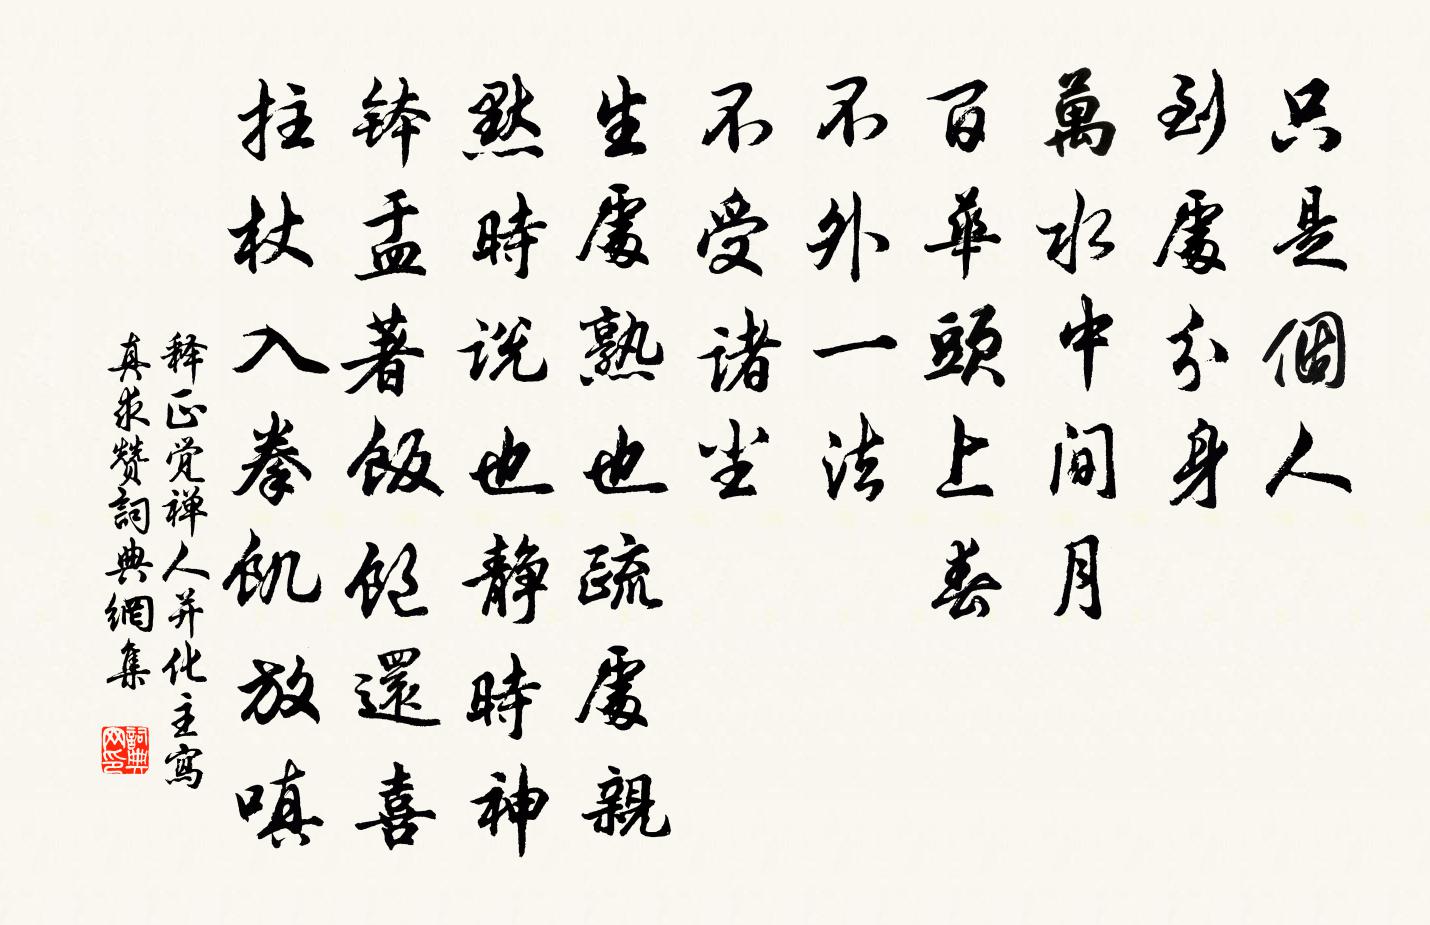 只是個人
到處分身
萬水中間月
百華頭上春
不外一法
不受諸塵
生處熟也疏處親
默時說也静時神
鉢盂著飯飽還喜
拄杖入拳飢放嗔
释正覚禅人并化主寫
真求赞詞典網集
詞典网印